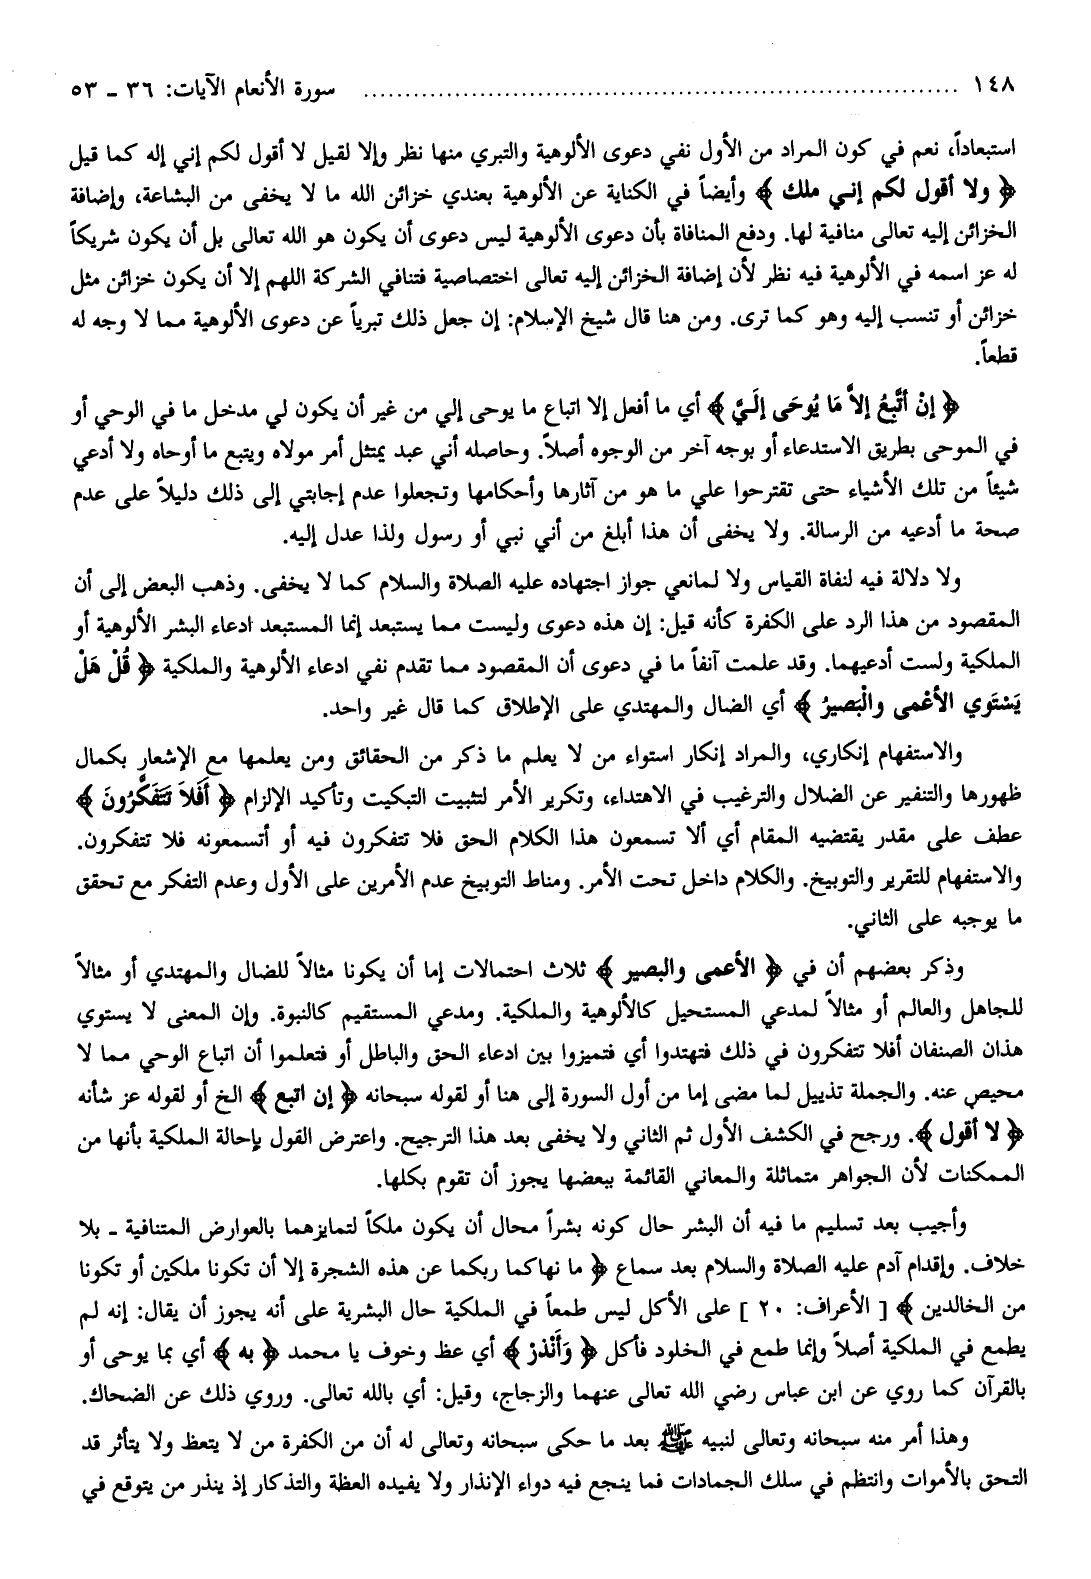 ١٤٨ .......................................................................... سورة الأنعام الآيات: ٣٦ ـ ٥٣
استبعاداً، نعم في كون المراد من الأول نفي دعوى الألوهية والتبري منها نظر وإلا لقيل لا أقول لكم إني إله كما قيل
﴿ ولا أقول لكم إني ملك ﴾ وأيضاً في الكناية عن الألوهية بعندي خزائن الله ما لا يخفى من البشاعة، وإضافة
الخزائن إليه تعالى منافية لها. ودفع المنافاة بأن دعوى الألوهية ليس دعوى أن يكون هو الله تعالى بل أن يكون شريكاً
له عز اسمه في الألوهية فيه نظر لأن إضافة الخزائن إليه تعالى اختصاصية فتنافي الشركة اللهم إلا أن يكون خزائن مثل
خزائن أو تنسب إليه وهو كما ترى. ومن هنا قال شيخ الإسلام: إن جعل ذلك تبرياً عن دعوى الألوهية مما لا وجه له
قطعاً.
﴿ إنْ أتَّبِعُ إلاَّ مَا يُوحَى إلَيَّ ﴾ أي ما أفعل إلا اتباع ما يوحى إلي من غير أن يكون لي مدخل ما في الوحي أو
في الموحى بطريق الاستدعاء أو بوجه آخر من الوجوه أصلاً. وحاصله أني عبد يمتثل أمر مولاه ويتبع ما أوحاه ولا أدعي
شيئاً من تلك الأشياء حتى تقترحوا علي ما هو من آثارها وأحكامها وتجعلوا عدم إجابتي إلى ذلك دليلاً على عدم
صحة ما أدعيه من الرسالة. ولا يخفى أن هذا أبلغ من أني نبي أو رسول ولذا عدل إليه.
ولا دلالة فيه لنفاة القياس ولا لمانعي جواز اجتهاده عليه الصلاة والسلام كما لا يخفى. وذهب البعض إلى أن
المقصود من هذا الرد على الكفرة كأنه قيل: إن هذه دعوى وليست مما يستبعد إنما المستبعد ادعاء البشر الألوهية أو
الملكية ولست أدعيهما. وقد علمت آنفاً ما في دعوى أن المقصود مما تقدم نفي ادعاء الألوهية والملكية ﴿ قُلْ هَلْ
يَسْتَوي الأعْمى والْبَصيرُ ﴾ أي الضال والمهتدي على الإطلاق كما قال غير واحد.
والاستفهام إنكاري، والمراد إنكار استواء من لا يعلم ما ذكر من الحقائق ومن يعلمها مع الإشعار بكمال
ظهورها والتنفير عن الضلال والترغيب في الاهتداء، وتكرير الأمر لتثبيت التبكيت وتأكيد الإلزام ﴿ أَفَلاَ تَتَفَكَّرُونَ ﴾
عطف على مقدر يقتضيه المقام أي ألا تسمعون هذا الكلام الحق فلا تتفكرون فيه أو أتسمعونه فلا تتفكرون.
والاستفهام للتقرير والتوبيخ. والكلام داخل تحت الأمر. ومناط التوبيخ عدم الأمرين على الأول وعدم التفكر مع تحقق
ما يوجبه على الثاني.
وذكر بعضهم أن في ﴿ الأعمى والبصير ﴾ ثلاث احتمالات إما أن يكونا مثالاً للضال والمهتدي أو مثالاً
للجاهل والعالم أو مثالاً لمدعي المستحيل كالألوهية والملكية. ومدعي المستقيم كالنبوة. وإن المعنى لا يستوي
هذان الصنفان أفلا تتفكرون في ذلك فتهتدوا أي فتميزوا بين ادعاء الحق والباطل أو فتعلموا أن اتباع الوحي مما لا
محيص عنه. والجملة تذييل لما مضى إما من أول السورة إلى هنا أو لقوله سبحانه ﴿ إن اتبع ﴾ الخ أو لقوله عز شأنه
﴿ لا أقول ﴾. ورجح في الكشف الأول ثم الثاني ولا يخفى بعد هذا الترجيح. واعترض القول بإحالة الملكية بأنها من
الممكنات لأن الجواهر متماثلة والمعاني القائمة ببعضها يجوز أن تقوم بكلها.
وأجيب بعد تسليم ما فيه أن البشر حال كونه بشراً محال أن يكون ملكاً لتمايزهما بالعوارض المتنافية ـ بلا
خلاف. وإقدام آدم عليه الصلاة والسلام بعد سماع ﴿ ما نهاكما ربكما عن هذه الشجرة إلا أن تكونا ملكين أو تكونا
من الخالدين ﴾ [ الأعراف: ٢٠ ] على الأكل ليس طمعاً في الملكية حال البشرية على أنه يجوز أن يقال: إنه لم
يطمع في الملكية أصلاً وإنما طمع في الخلود فأكل ﴿ وَأَنْذرْ ﴾ أي عظ وخوف يا محمد ﴿ به ﴾ أي بما يوحى أو
بالقرآن كما روي عن ابن عباس رضي الله تعالى عنهما والزجاج، وقيل: أي بالله تعالى. وروي ذلك عن الضحاك.
وهذا أمر منه سبحانه وتعالى لنبيه ﷺ بعد ما حكى سبحانه وتعالى له أن من الكفرة من لا يتعظ ولا يتأثر قد
التحق بالأموات وانتظم في سلك الجمادات فما ينجع فيه دواء الإنذار ولا يفيده العظة والتذكار إذ ينذر من يتوقع في